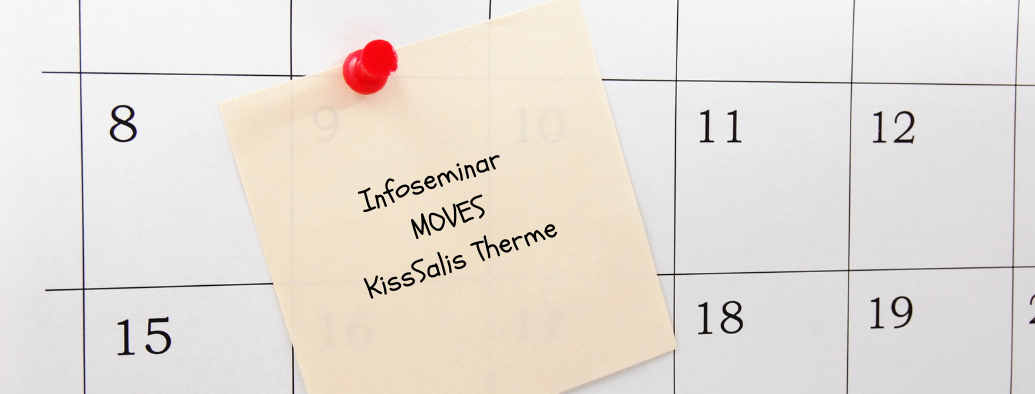 8 9 10 11 12
Infoseminar
MOVES
KissSalis Therme
15 16 17 18 19